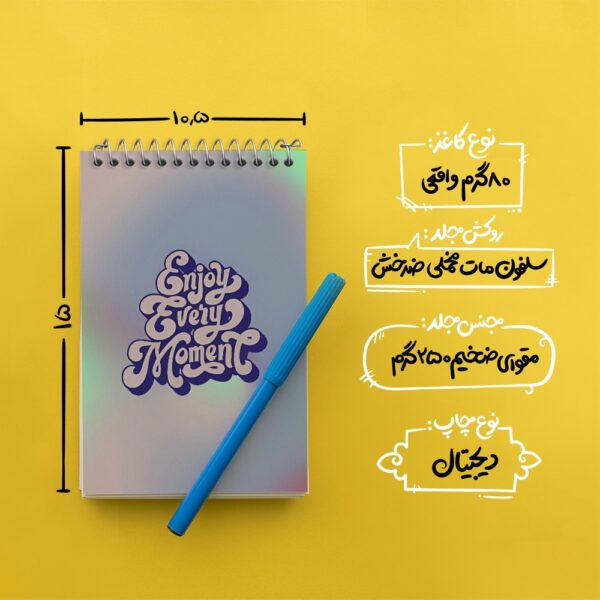 ۱۰,۵
۱۵
Enjoy
Every
Moment
نوع کاغذ:
۸۰گرم واقعی
روکش جلد:
سلفون مات مخملی ضدخش
جنس جلد:
مقوای ضخیم ۲۵۰گرم
نوع چاپ:
دیجیتال